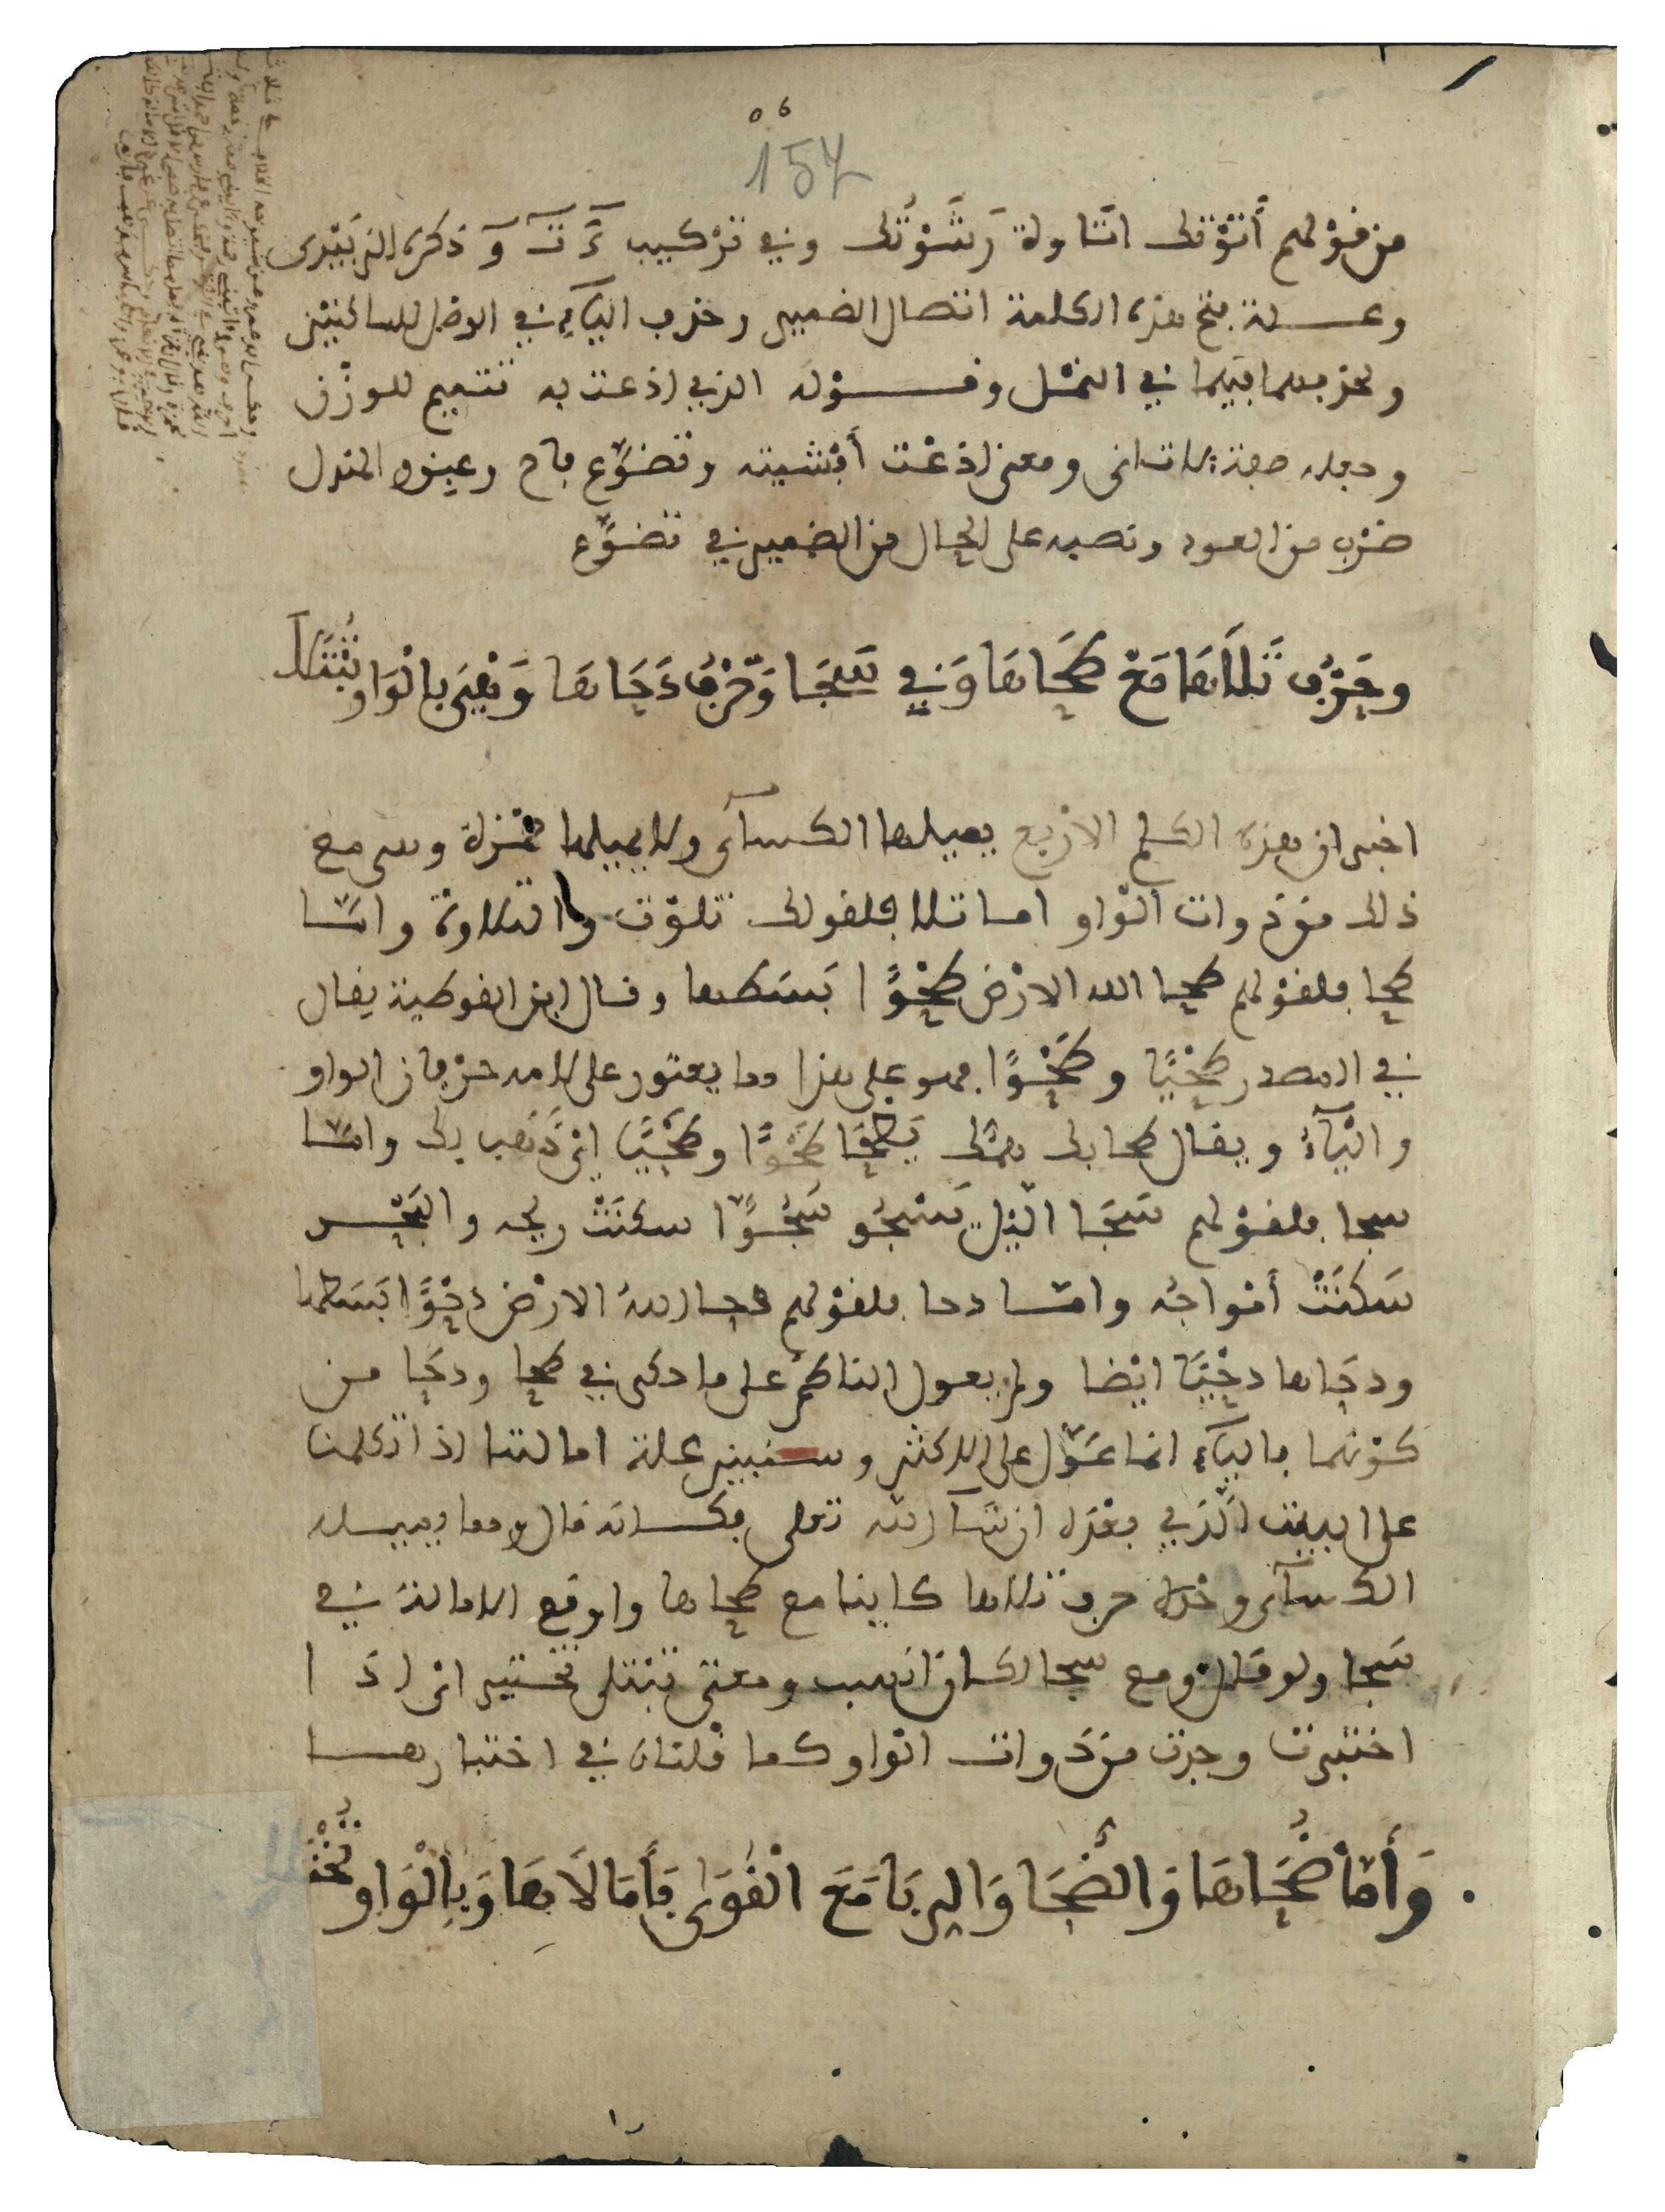 157
من قولهم أتؤتك اتاوة وشوتك وفي تركيب ءَ تَ وَ ذكره الزبيدى
وعلة فتح هذه الكلمة اتصال الضمير وحذف الياء في الوصل للساكنين
ونحو بعد ما فيها في النمل وقوله الذي اذعت به تتميم للوزن
وجعله صفة لاتانى ومعنى اذعت أفشيته وتضوع فاح وعينو المندل
ضرب من العود ونصبه على الحال من الضمير في تضوع
وحرف تلاها مع طحاها وفي سجا وحرف دحاها وهي بالواو تبتلا
اخبر ان هذه الكلم الاربع يميلها الكسآى ولا يميلها حمزة وهي مع
ذلك من ذوات الواو اما تلا فلقولك تلوت والتلاوة واما
طحا فلقولهم طحا الله الارض طحوا بسطها وقال ابن القوطية يقال
في المصدر طحيا وطحوا فهو على هذا مما يعتور على لامه حرفان الواو
والياء ويقال طحا بك همك يطحا طحوا وطحيا اى ذهب بك واما
سجا فلقولهم سجا الليل يسجو سجوا سكنت ريحه والبحر
سكنت أمواجه واما دحا فلقولهم دحا الله الارض دحوا بسطها
ودحاها دحيا ايضا ولم يعول الناظم على ما حكى في طحا ودحا من
كونهما بالياء انما عول على الاكثر وسنبين علة امالتها اذا تكلمنا
على البيت الذي بعده ان شآ الله تعلى فكانه قال ومما يميله
الكسآى وحده حرف تلاها كاينا مع طحاها واوقع الامالة في
سجا ولو قال ومع سجا لكان انسب ومعنى تبتلى تختبر اى اذا
اختبرت وجدت من ذوات الواو كما قلناه في اختبارها
وأما ضحاها والضحا والربا مع القوى فأمالاها وبالواو تختلا